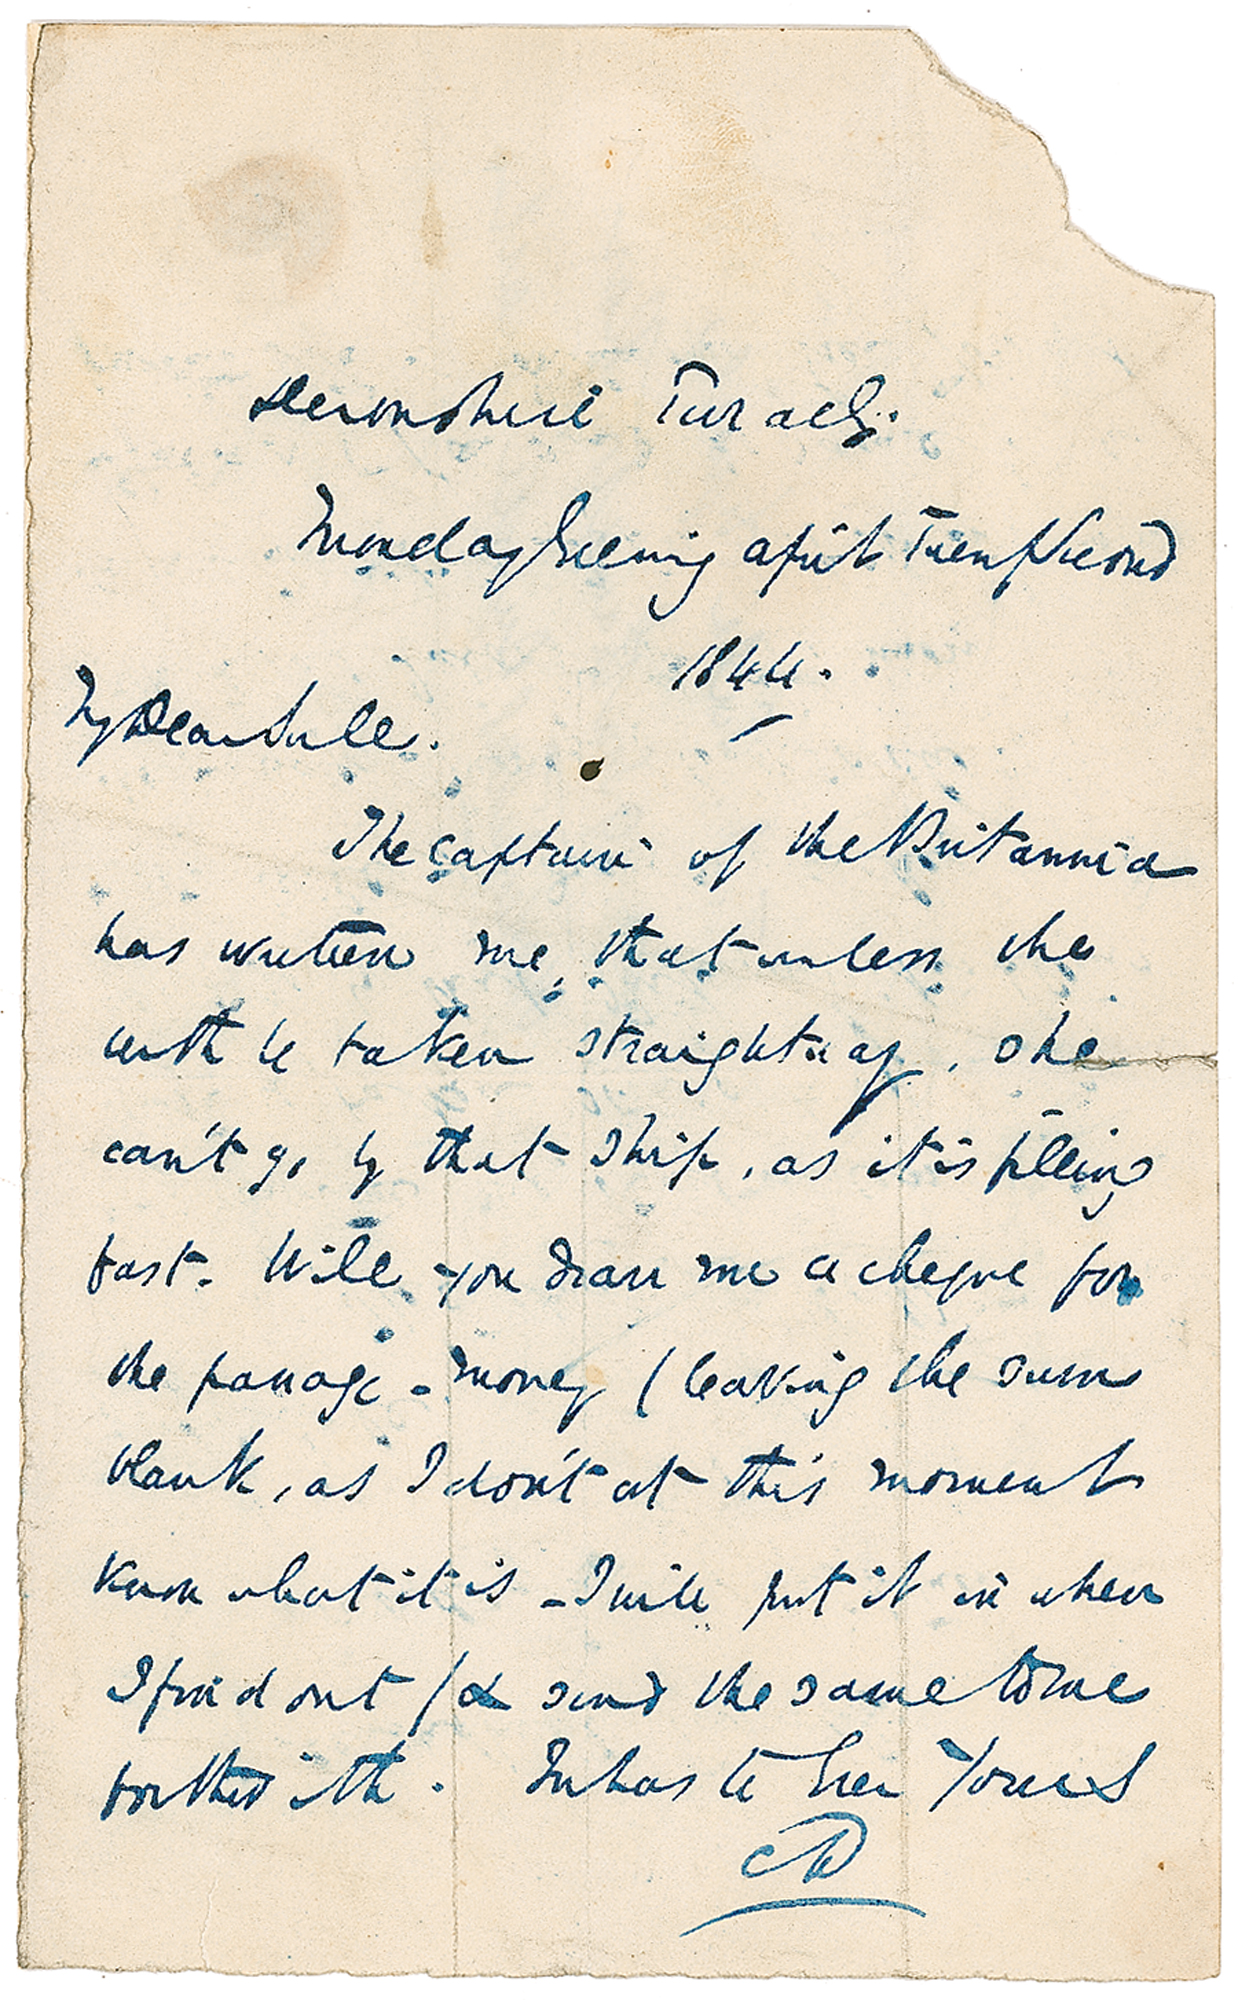 Devonshire Terrace.
Monday Evening April Twenty Second
1844.
My Dear Sir
The Captain of the Britannia
has written me, that unless the
berth be taken straightway, she
can't go by that ship, as it is filling
fast. Will you draw me a cheque for
the passage-money (leaving the sum
blank, as I don't at this moment
know what it is - I will put it in when
I find out) & send the same to me
forthwith. In haste Ever Yours
CD